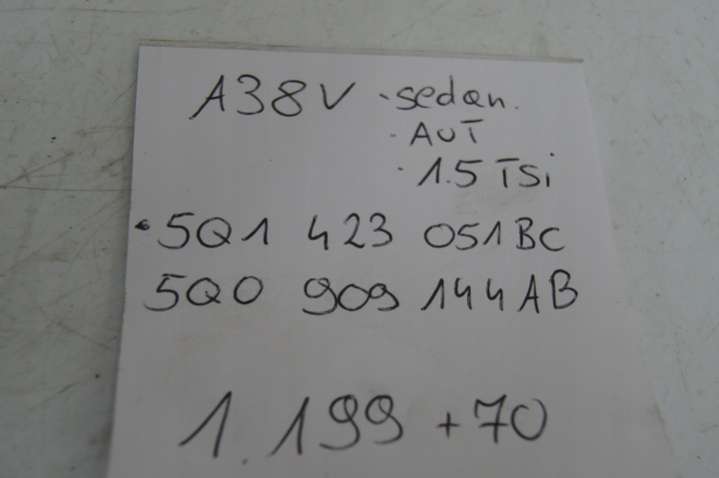 A38V · sedan.
· AUT
· 1.5 TSi
· 5Q1 423 051BC
5Q0 909 144AB
1.199 + 70